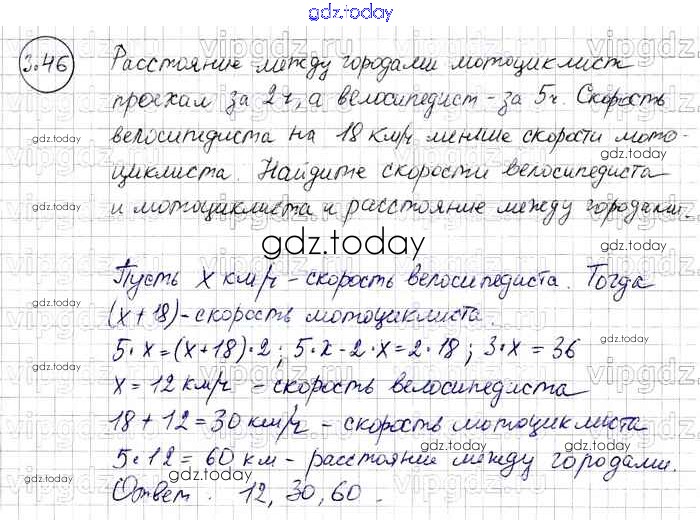 gdz.today
3.46 Расстояние между городами мотоциклист
проехал за 2 ч, а велосипедист - за 5 ч. Скорость
велосипедиста на 18 км/ч меньше скорости мото-
циклиста. Найдите скорости велосипедиста
и мотоциклиста и расстояние между городами.
gdz.today
Пусть x км/ч - скорость велосипедиста. Тогда
(x + 18) - скорость мотоциклиста.
5·x=(x+18)·2; 5·x-2·x=2·18; 3·x=36
x=12 км/ч - скорость велосипедиста
18+12=30 км/ч - скорость мотоциклиста
5·12=60 км - расстояние между городами.
Ответ: 12, 30, 60.